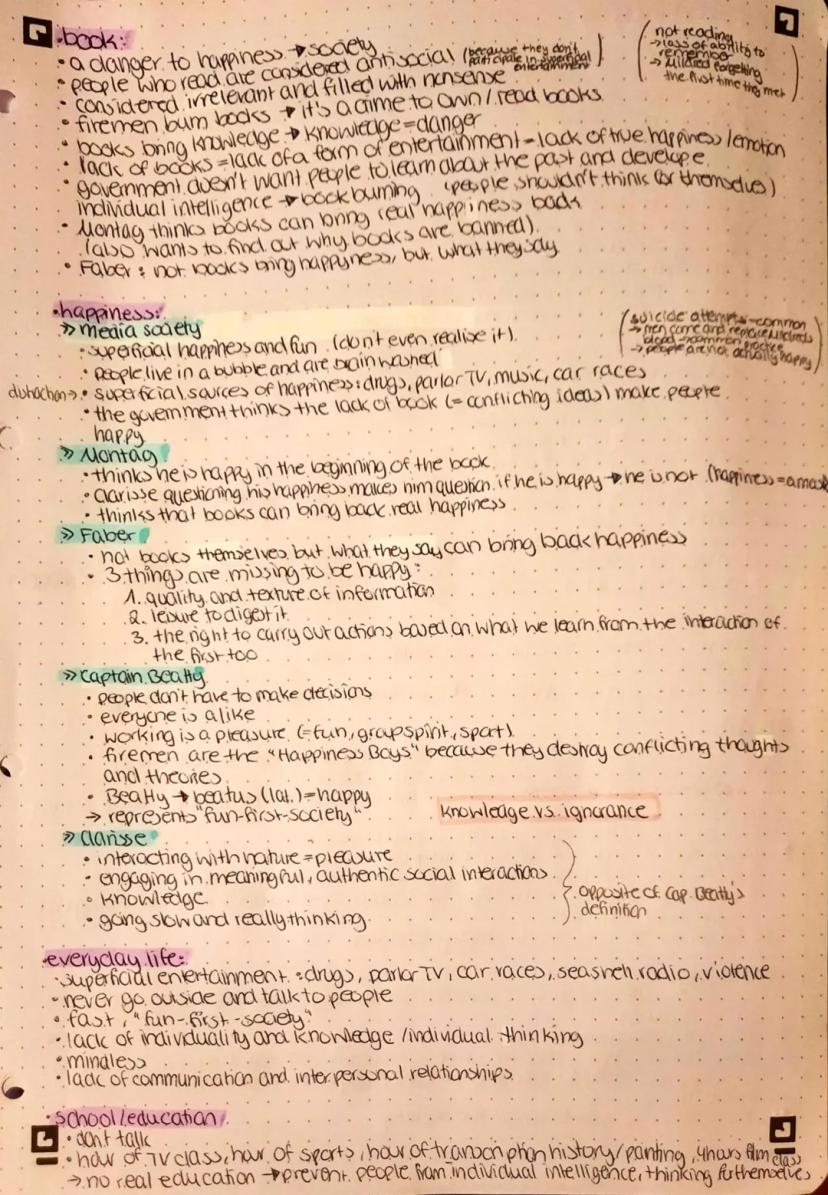 ·book:
• a danger to happiness → society
• people who read are considered antisocial (because they don't participate in superficial entertainment)
(not reading
→ loss of ability to remember
→ Mildred forgetting the first time they met)
• considered irrelevant and filled with nonsense
• firemen burn books → it's a crime to own/read books
• books bring knowledge → knowledge = danger
• lack of books = lack of a form of entertainment - lack of true happiness/emotion
• government doesn't want people to learn about the past and develope
individual intelligence → book burning (people shouldn't think for themselves)
• Montag thinks books can bring real happiness back
(also wants to find out why books are banned)
• Faber: not books bring happyness, but what they say
·happiness:
» media society
• superficial happiness and fun (don't even realise it)
(suicide attempts - common
→ men come and replace blood - common practice
→ people are not actually happy)
• people live in a bubble and are brainwashed
distraction → • superficial sources of happiness: drugs, parlor TV, music, car races
• the government thinks the lack of book (= conflicting ideas) make people
happy
» Montag
• thinks he is happy in the beginning of the book
• Clarisse questioning his happiness makes him question if he is happy → he is not (happiness = a mask
• thinks that books can bring back real happiness
» Faber
• not books themselves, but what they say can bring back happiness
• 3 things are missing to be happy:
1. quality and texture of information
2. leisure to digest it
3. the right to carry out actions based on what we learn from the interaction of
the first too
» Captain Beatty
• people don't have to make decisions
• everyone is alike
• working is a pleasure (= fun, group spirit, sport)
• firemen are the "Happiness Boys" because they destroy conflicting thoughts
and theories
• Beatty → beatus (lat.) = happy
→ represents "fun-first-society"
knowledge vs. ignorance
» Clarisse
• interacting with nature = pleasure
• engaging in meaningful, authentic social interactions
• knowledge
• going slow and really thinking
opposite of Cap. Beatty's
definition
·everyday life:
• superficial entertainment: drugs, parlor TV, car races, seashell radio, violence
• never go outside and talk to people
• fast, "fun-first-society"
• lack of individuality and knowledge/individual thinking
• mindless
• lack of communication and interpersonal relationships
·school/education
• dont talk
• hour of TV class, hour of sports, hour of transcription history/painting, 4 hours film class
→ no real education → prevent people from individual intelligence, thinking for themselves